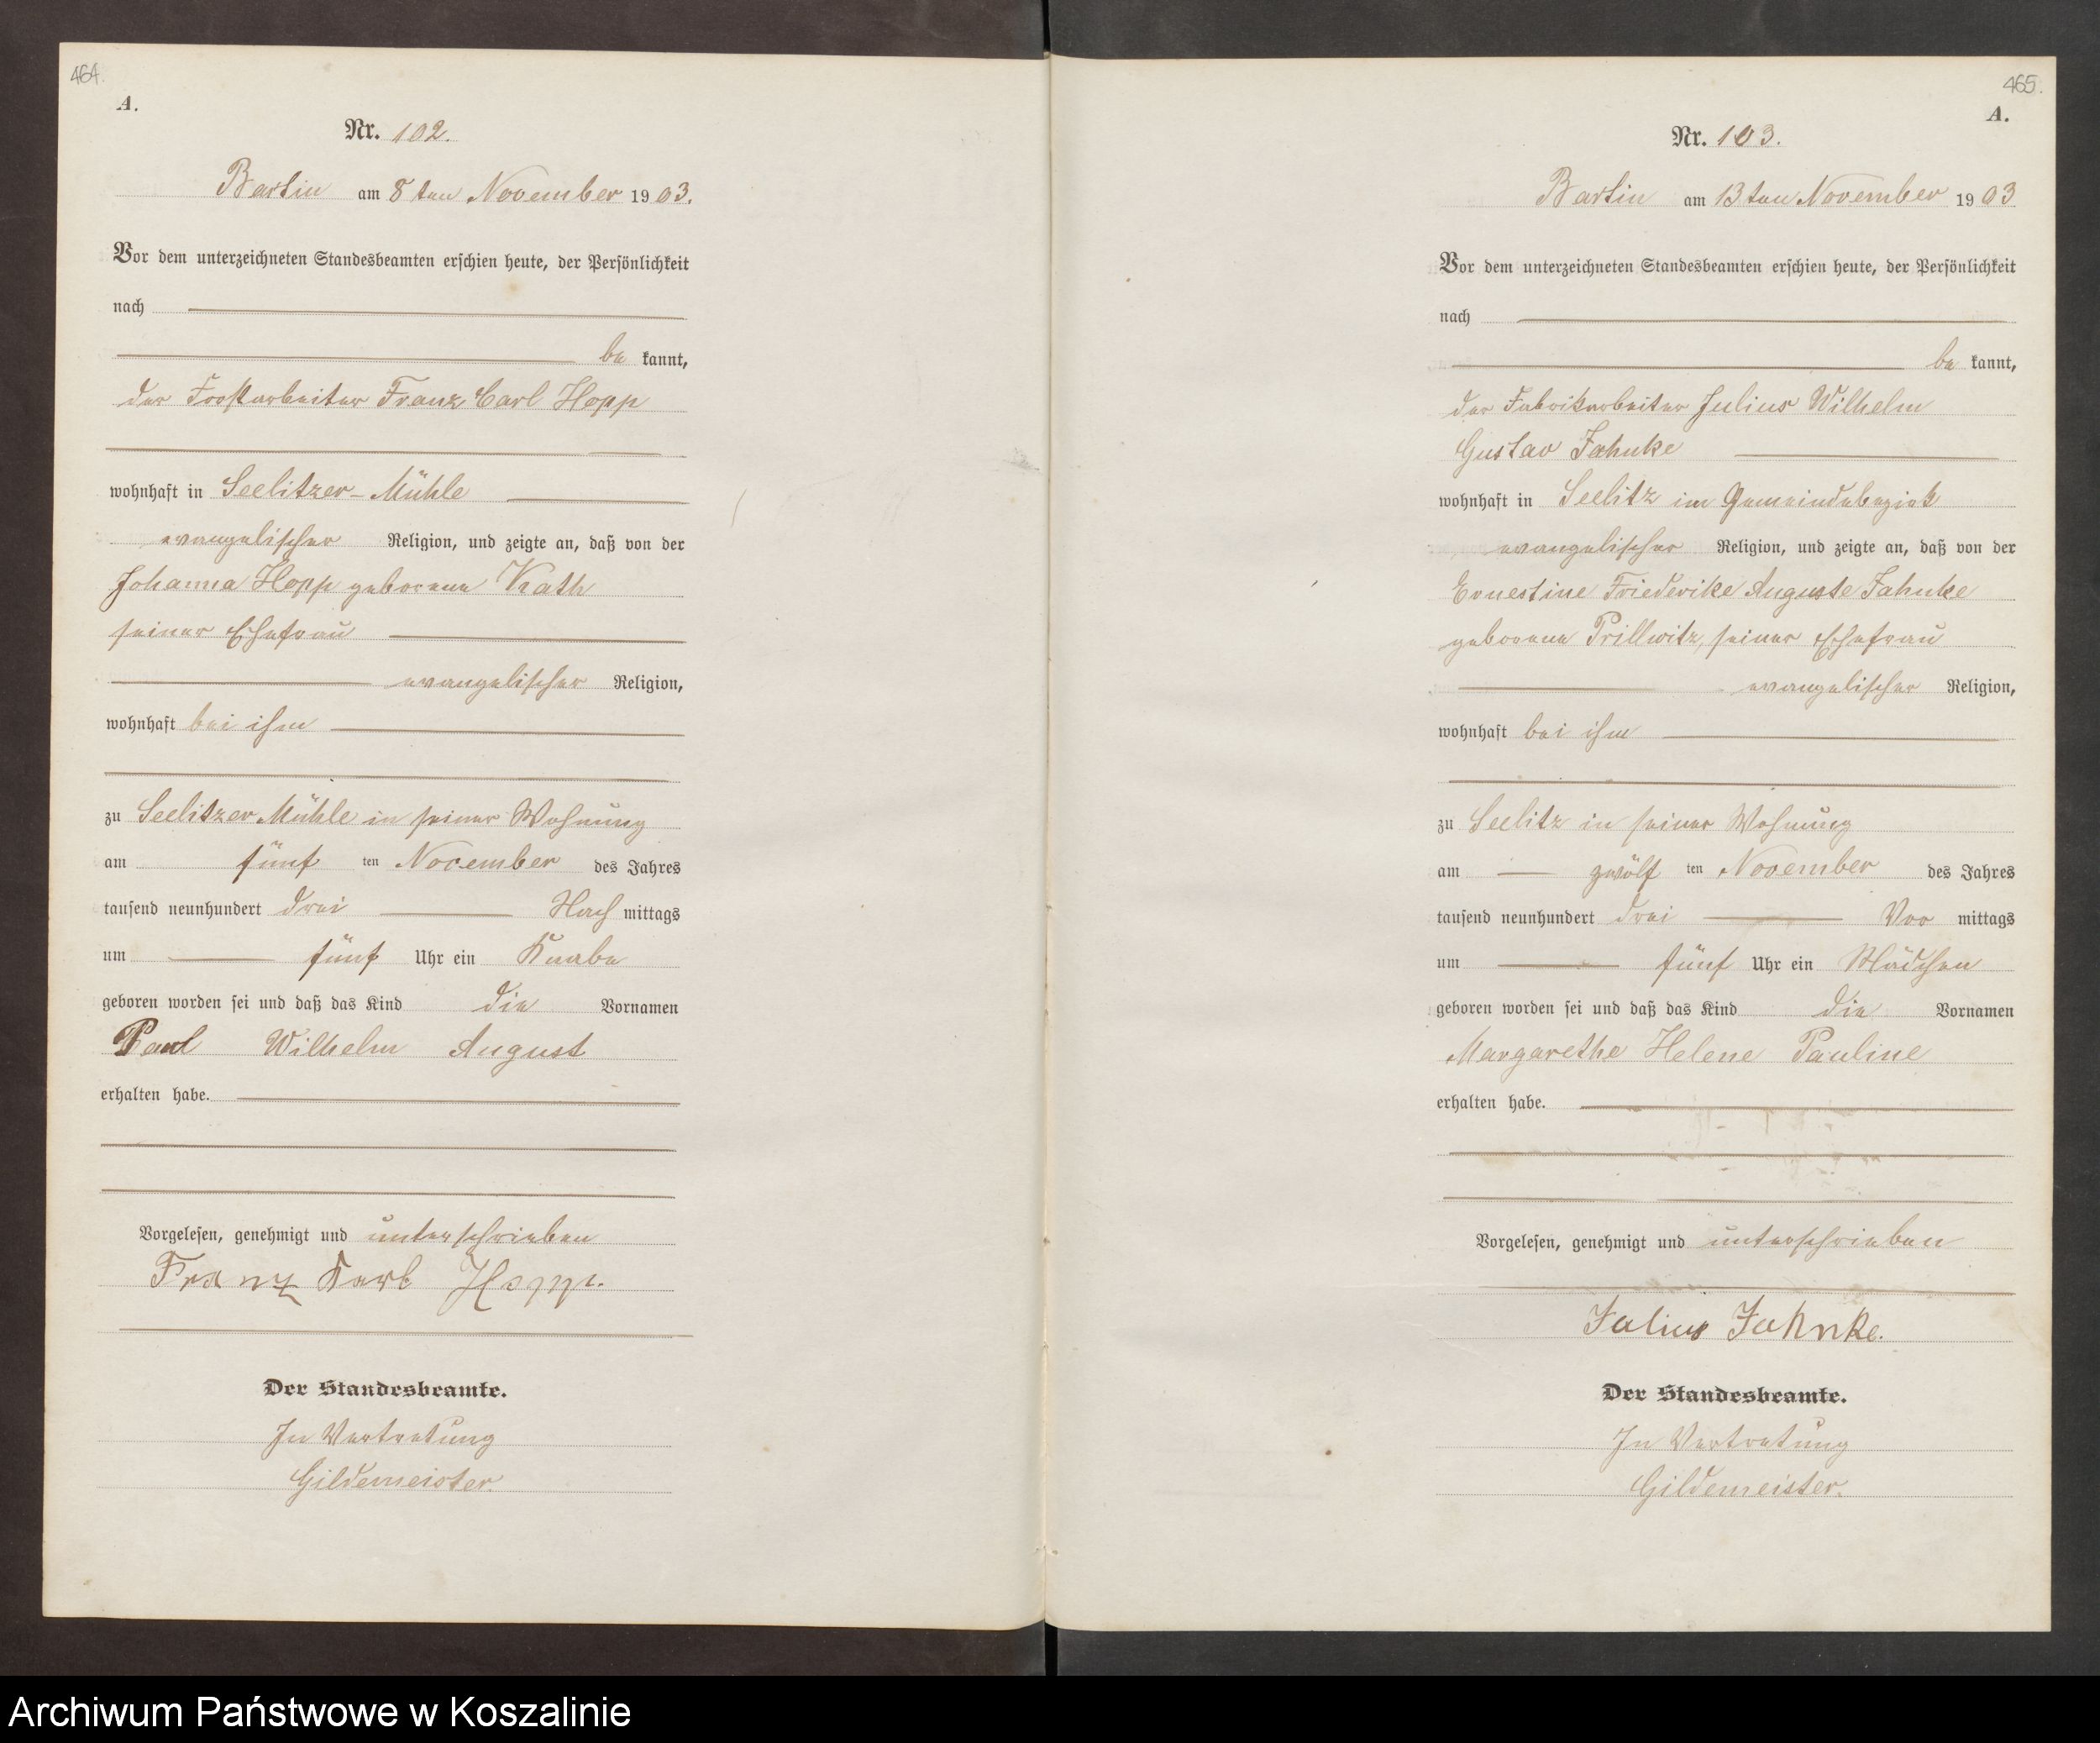 464.
A.
Nr. 102.
Bartin am 8ten November 1903.
Vor dem unterzeichneten Standesbeamten erschien heute, der Persönlichkeit
nach
be kannt,
der Forstarbeiter Franz Carl Hopp
wohnhaft in Seelitzer-Mühle
evangelischer Religion, und zeigte an, daß von der
Johanna Hopp geborene Kath
seiner Ehefrau
evangelischer Religion,
wohnhaft bei ihm
zu Seelitzer Mühle in seiner Wohnung
am fünf ten November des Jahres
tausend neunhundert drei Nach mittags
um fünf Uhr ein Knabe
geboren worden sei und daß das Kind die Vornamen
Paul Wilhelm August
erhalten habe.
Vorgelesen, genehmigt und unterschrieben
Franz Karl Hopp.
Der Standesbeamte.
In Vertretung
Gildemeister.
465.
A.
Nr. 103.
Bartin am 13ten November 1903
Vor dem unterzeichneten Standesbeamten erschien heute, der Persönlichkeit
nach
be kannt,
der Fabrikarbeiter Julius Wilhelm
Gustav Jahnke
wohnhaft in Seelitz im Gemeindebezirk
evangelischer Religion, und zeigte an, daß von der
Ernestine Friederike Auguste Jahnke
geborene Prillwitz, seiner Ehefrau
evangelischer Religion,
wohnhaft bei ihm
zu Seelitz in seiner Wohnung
am zwölf ten November des Jahres
tausend neunhundert drei Vor mittags
um fünf Uhr ein Mädchen
geboren worden sei und daß das Kind die Vornamen
Margarethe Helene Pauline
erhalten habe.
Vorgelesen, genehmigt und unterschrieben
Julius Jahnke.
Der Standesbeamte.
In Vertretung
Gildemeister.
Archiwum Państwowe w Koszalinie